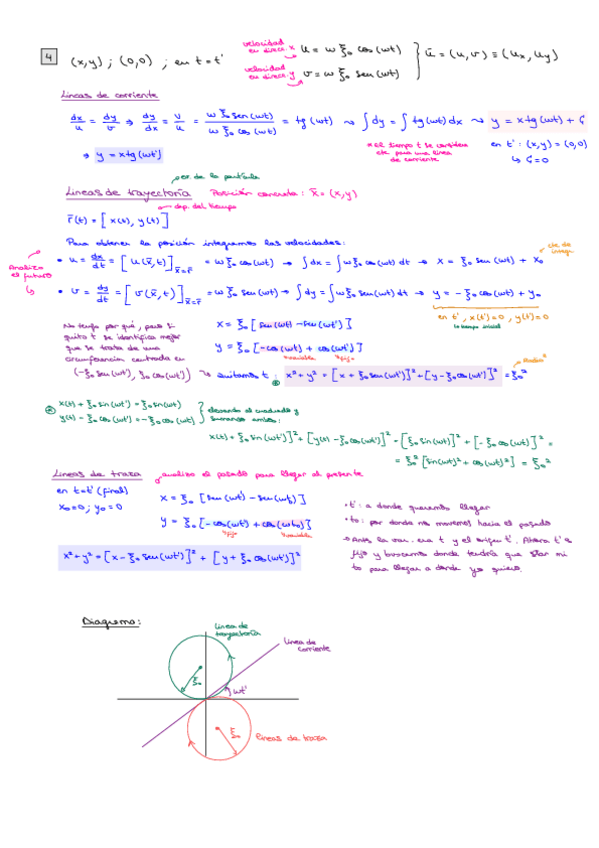 4 (x,y) ; (0,0) ; en t=t'
velocidad en direcc. x u = ω ξ₀ cos(ωt)
velocidad en direcc. y v = ω ξ₀ sen(ωt)
ū = (u,v) ≡ (ux, uy)
Líneas de corriente
dx/u = dy/v ⇒ dy/dx = v/u = ω ξ₀ sen(ωt) / ω ξ₀ cos(ωt) = tg(ωt) ⇝ ∫dy = ∫tg(ωt)dx ⇝ y = x tg(ωt) + C
* El tiempo t se considera cte para una línea de corriente
en t' : (x,y) = (0,0)
↳ C=0
⇒ y = x tg(ωt')
de la partícula
Líneas de trayectoria Posición concreta : x̄ = (x,y)
dep. del tiempo
r̄(t) = [x(t), y(t)]
Para obtener la posición integramos las velocidades:
Analizo el futuro
• u = dx/dt = [u(x̄,t)]x̄=r̄ = ω ξ₀ cos(ωt) → ∫dx = ∫ω ξ₀ cos(ωt) dt → x = ξ₀ sen(ωt) + x₀
cte de integr.
• v = dy/dt = [v(x̄,t)]x̄=r̄ = ω ξ₀ sen(ωt) → ∫dy = ∫ω ξ₀ sen(ωt) dt → y = -ξ₀ cos(ωt) + y₀
en t', x(t')=0, y(t')=0
tiempo inicial
No tengo por qué, pero si quito t se identifica mejor que se trata de una circunferencia centrada en (-ξ₀ sen(ωt'), ξ₀ cos(ωt'))
x = ξ₀ [sen(ωt) - sen(ωt')]
y = ξ₀ [-cos(ωt) + cos(ωt')]
variable fijo
quitamos t : x²+y² = [x + ξ₀ sen(ωt')]² + [y - ξ₀ cos(ωt')]² = ξ₀²
Radio²
x(t) + ξ₀ sin(ωt') = ξ₀ sin(ωt)
y(t) - ξ₀ cos(ωt') = -ξ₀ cos(ωt)
elevando al cuadrado y sumando ambos:
x(t) + ξ₀ sin(ωt')]² + [y(t) - ξ₀ cos(ωt')]² = [ξ₀ sin(ωt)]² + [-ξ₀ cos(ωt)]² =
= ξ₀² [sin(ωt)² + cos(ωt)²] = ξ₀²
Líneas de traza analizo el pasado para llegar al presente
en t=t' (final)
x₀=0 ; y₀=0
x = ξ₀ [sen(ωt') - sen(ωt₀)]
y = ξ₀ [-cos(ωt) + cos(ωt₀)]
fijo variable
x²+y² = [x - ξ₀ sen(ωt')]² + [y + ξ₀ cos(ωt')]²
• t' : a donde queremos llegar
• to : por donde nos movemos hacia el pasado
→ Antes la var. era t y el origen t'. Ahora t' es fijo y buscamos donde tendría que estar mi to para llegar a donde yo quiero.
Diagrama:
línea de trayectoria
Línea de corriente
ξ₀
ωt'
ξ₀
líneas de traza